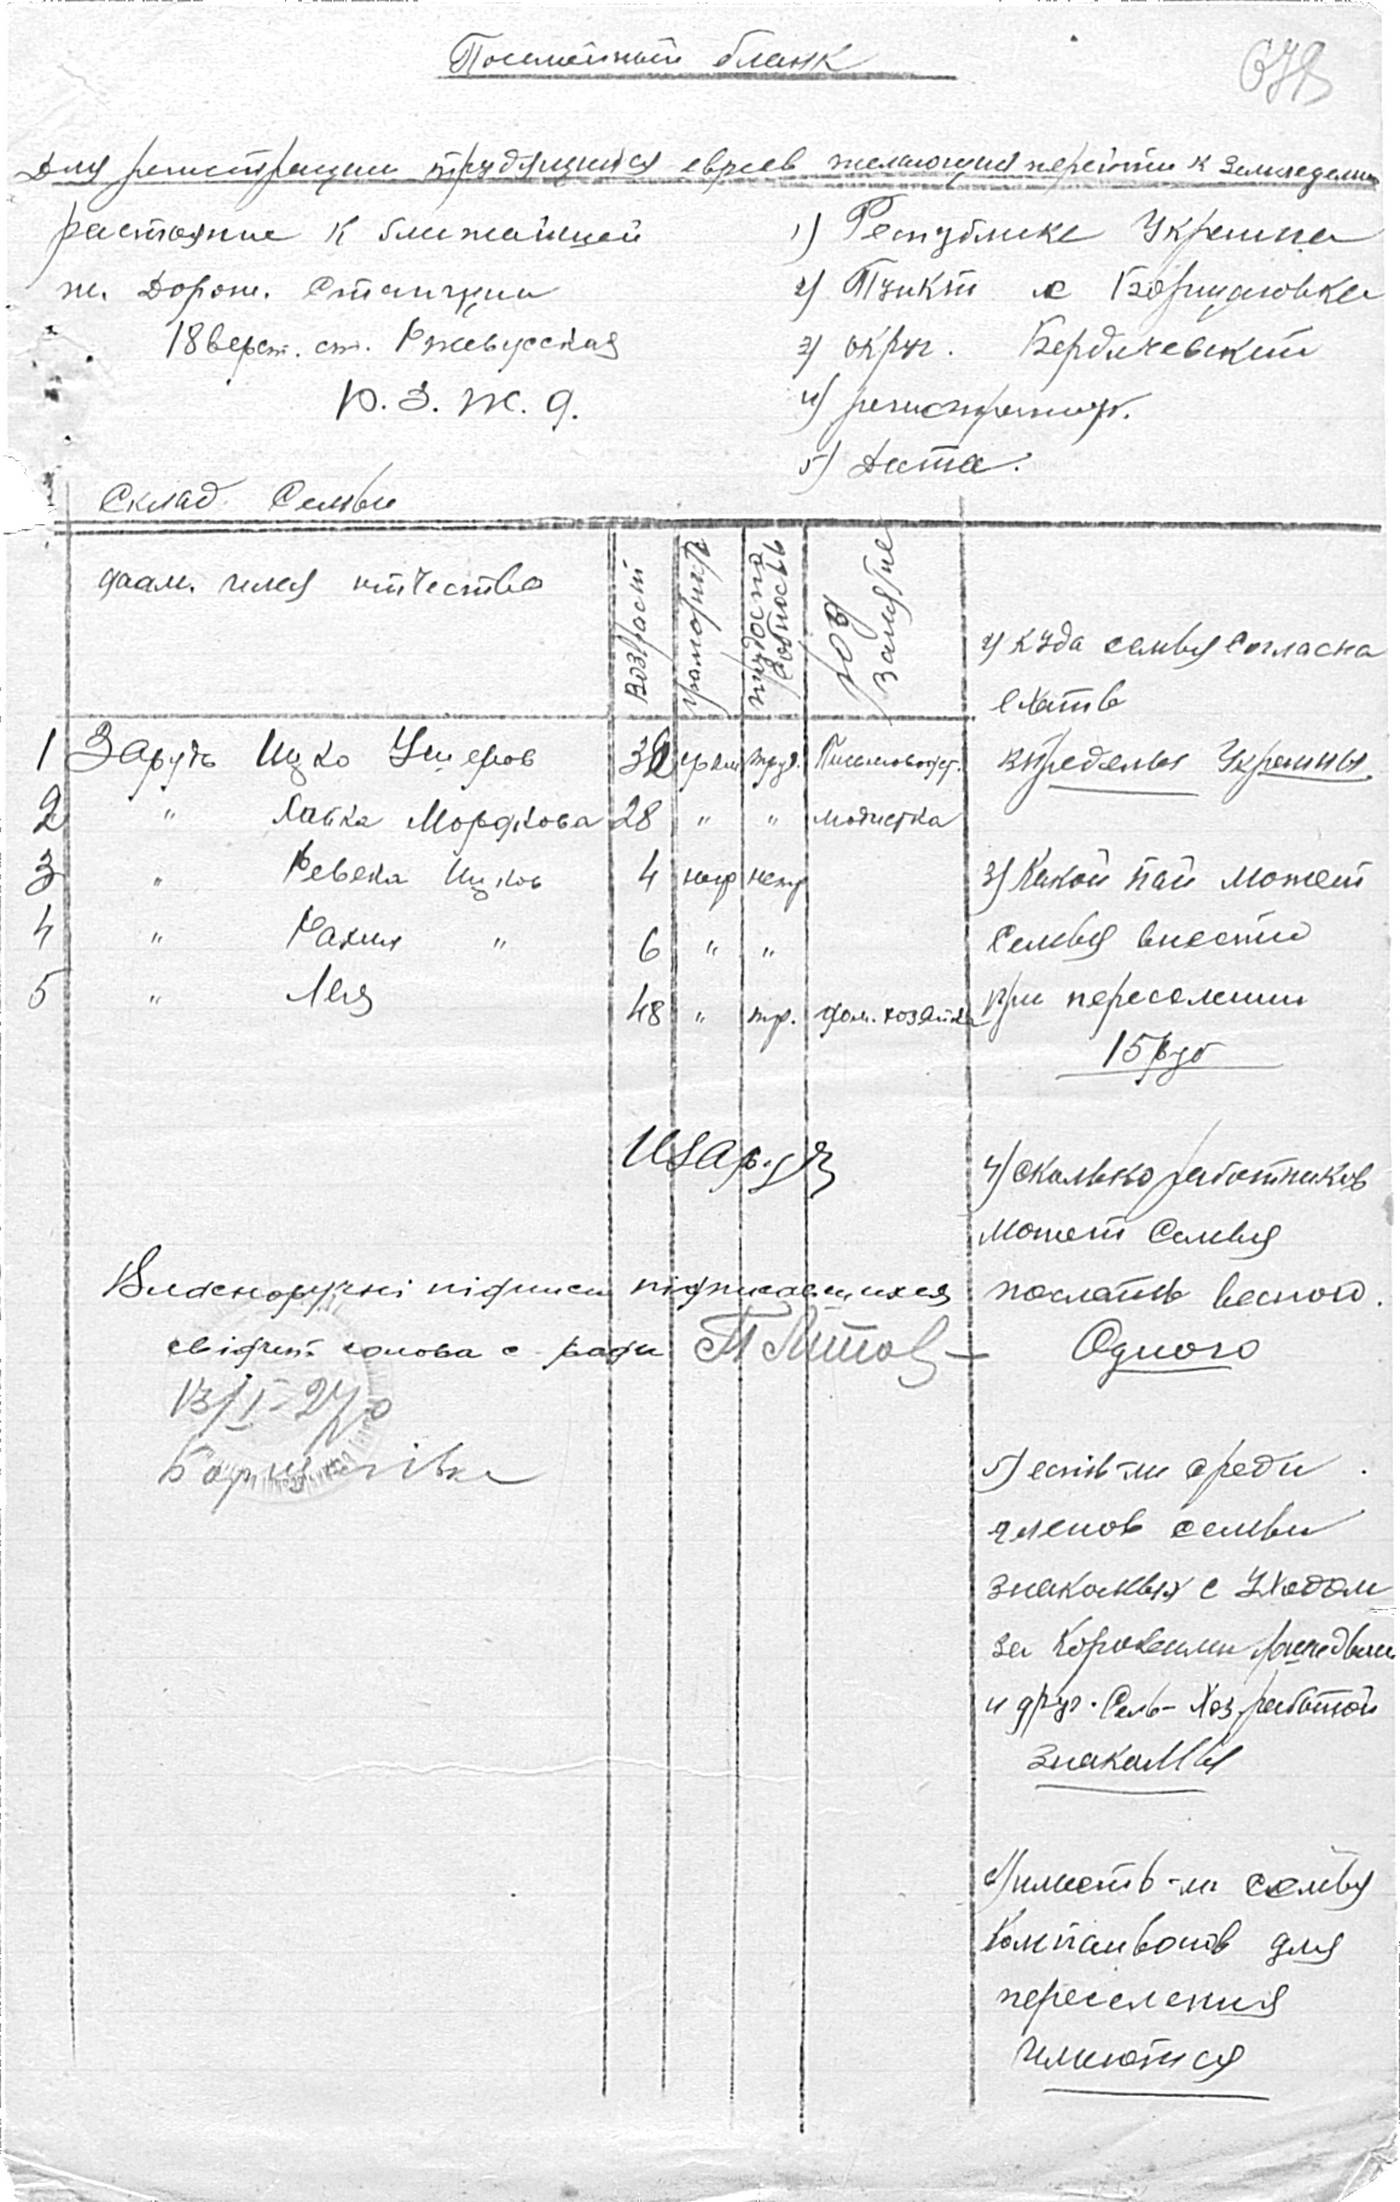 Посемейный бланк
678
Для регистрации трудящихся евреев желающих перейти к земледелию
растояние к ближайшей
ж. дорож. станции
18 верст. ст. Ржевусская
Ю. З. Ж. д.
1) Республике Украина
2) Пункт с Борщаговка
3) округ. Бердичевский
4) регистратор.
5) Дата:
Склад Семьи
фам. имя отчество
возраст
грамотность
род занятие
1 Зарудь Ицко Ушеров 36 грам труд. Письмоводит.
2 " Хайка Мордкова 28 " " модистка
3 " Ревека Ицков 4 негр нетр
4 " Рахиль " 6 " "
5 " Лея 48 " тр. дом. хозяйка
ИЗаруд
Власноручні підписи підписавшихся
свідчит голова с ради
13/I-27 р
Борщагівка
2) куда семья согласна
ехать
в пределы Украины
3) Какой пай может
семья внести
при переселении
15 руб
4) сколько работников
может семья
послать весной.
Одного
5) есть-ли среди
членов семьи
знакомых с уходом
за коровами лошадьми
и друг. сель-хоз работой
знакомы
6) имеет-ли семья
компаньонов для
переселения
имеются